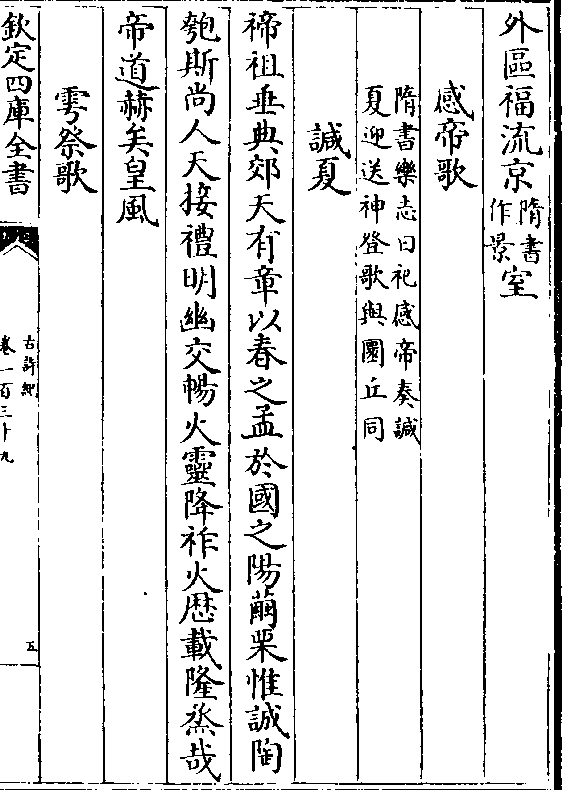 外區福流京隋書作景室
感帝歌
隋書樂志曰祀感帝奏諴
夏迎送神登歌與圜丘同
諴夏
禘祖垂典郊天有章以春之孟於國之陽繭栗惟誠陶
匏斯尚人天接禮明幽交暢火靈降祚火歴載隆烝哉
帝道赫矣皇風
雩祭歌
欽定四庫全書
古詩紀
卷一百三十九
五